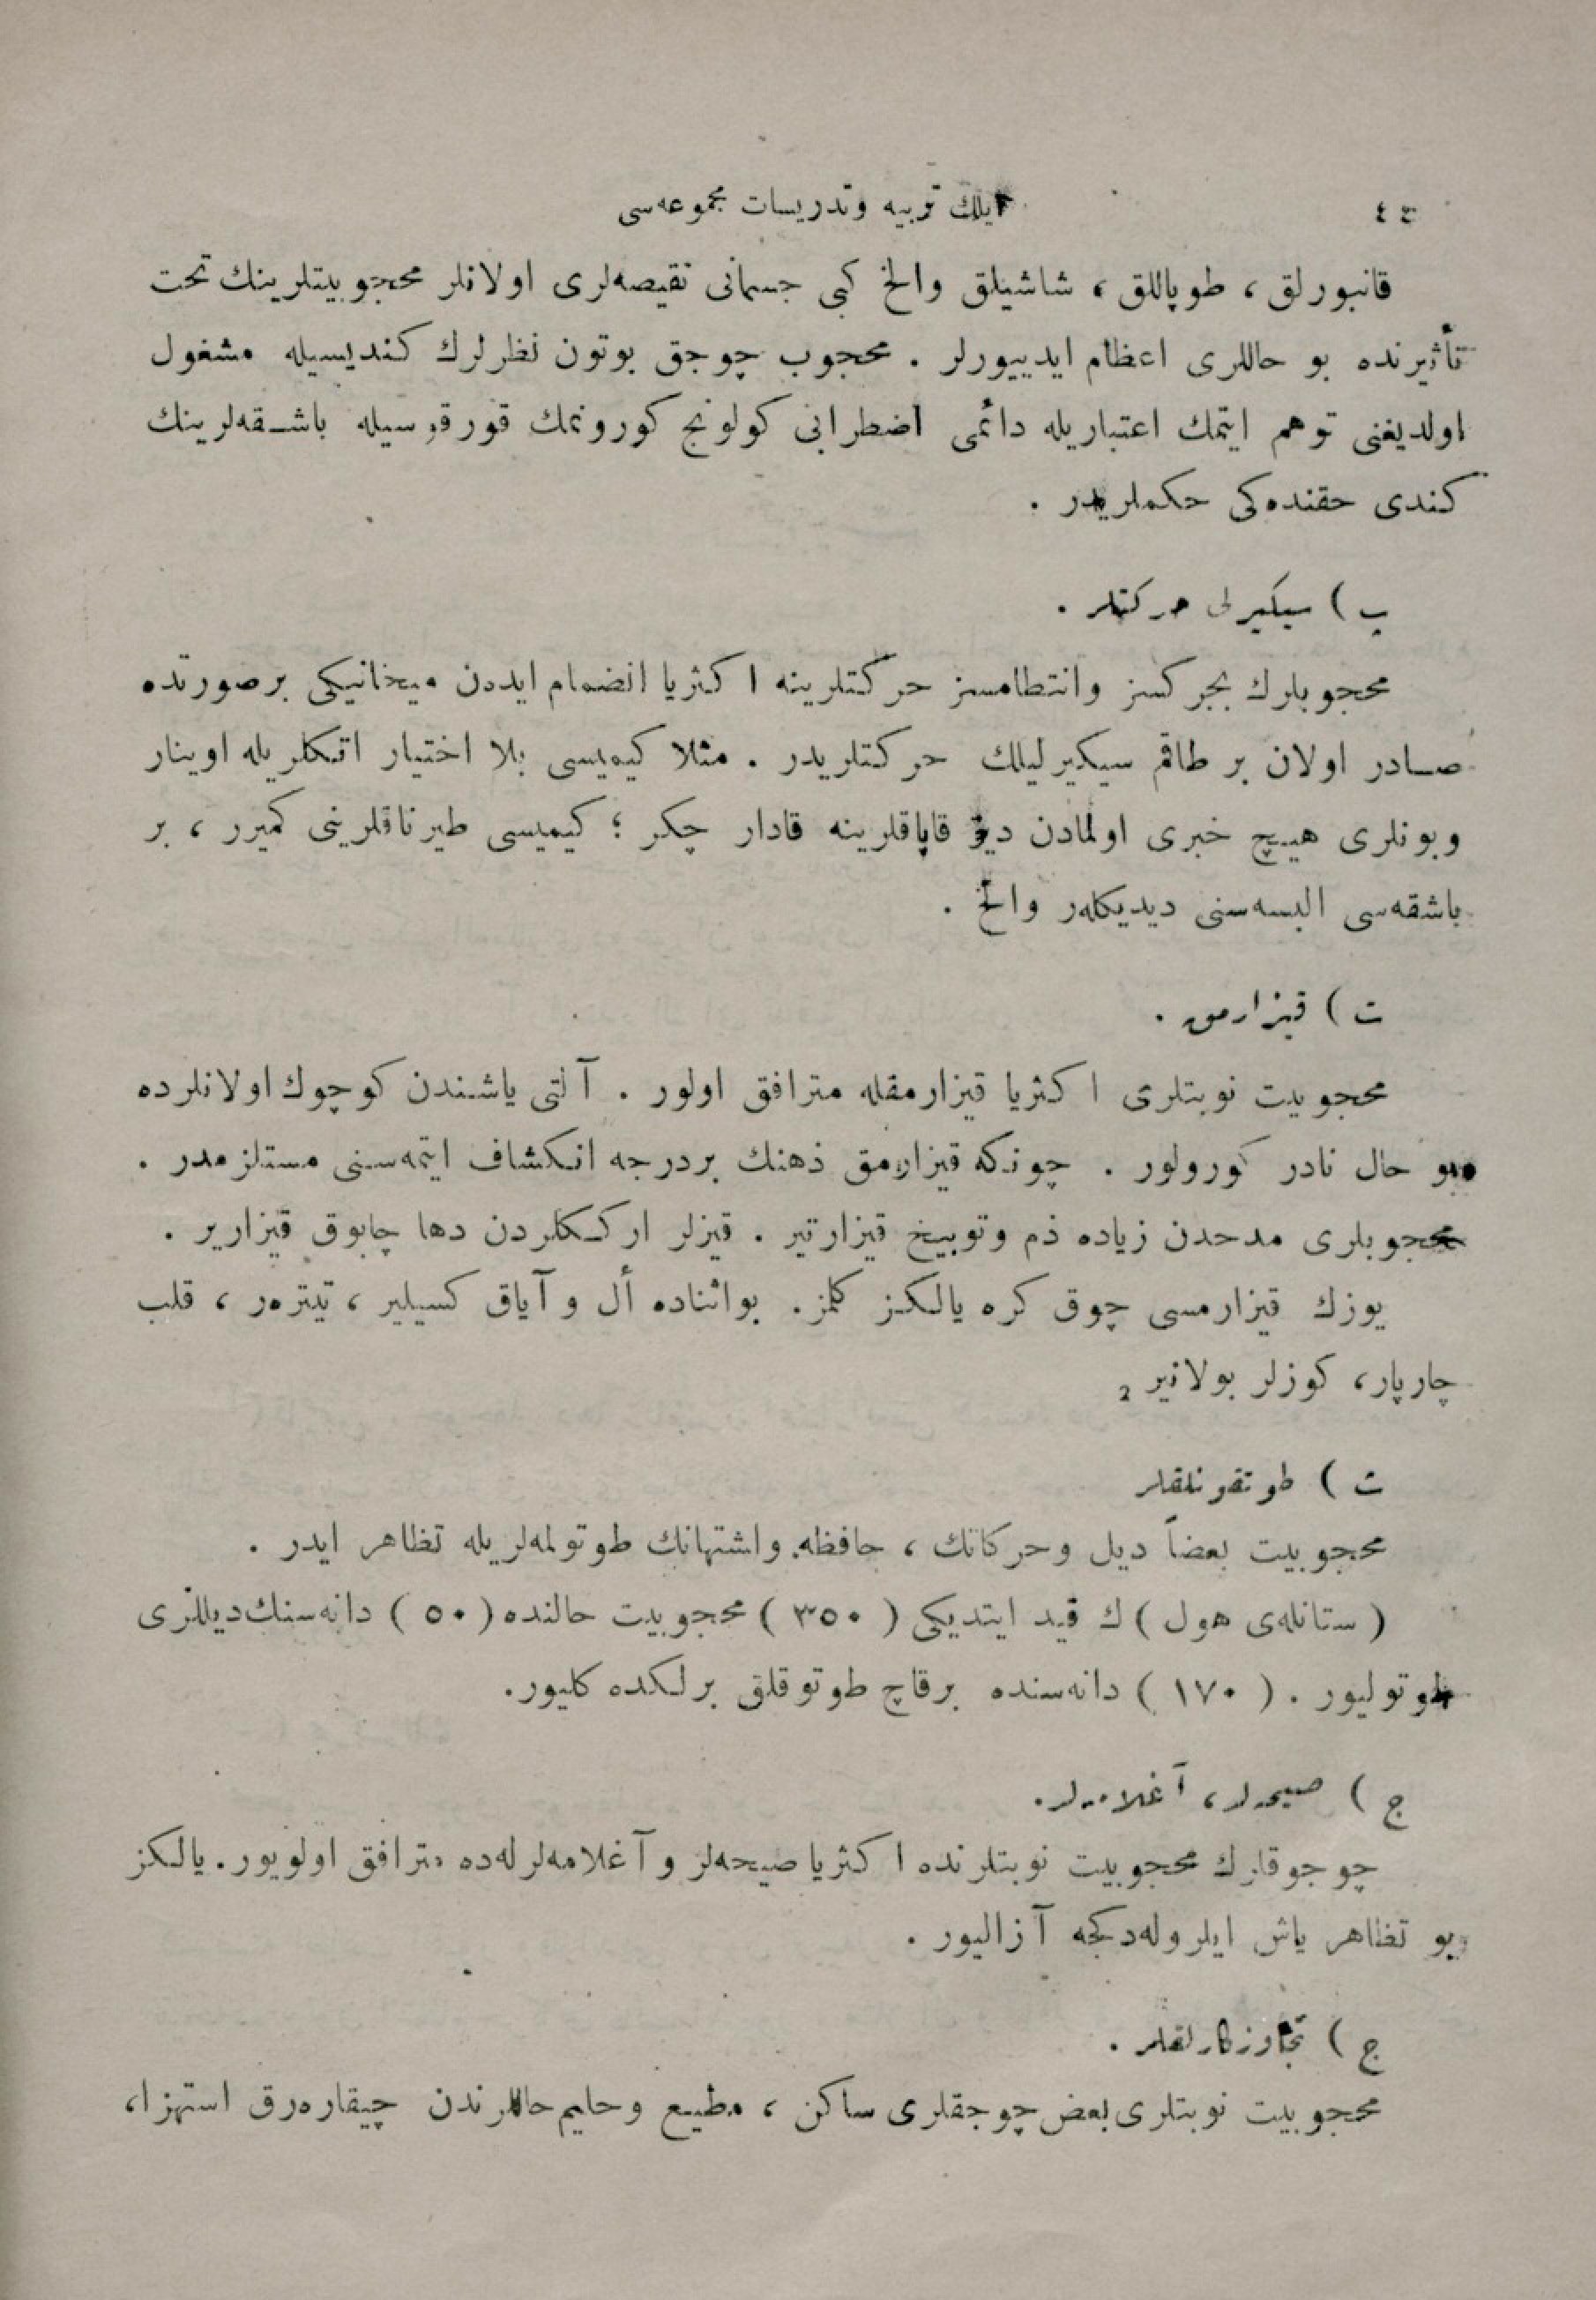 ٤٣ ایلك تربیه وتدریسات مجموعه‌سی
قانبورلق ، طوپاللق ، شاشیلق والخ كبی جسمانی نقیصه‌لری اولانلر محجوبیتلرینك تحت
تأثیرنده بو حاللری اعظام ایدییورلر . محجوب چوجق بوتون نظرلرك كندیسیله مشغول
اولدیغنی توهم ایتمك اعتباریله دائمی اضطرابی كولونج كورونمك قورقوسیله باشقه‌لرینك
كندی حقنده‌كی حكملریدر .
ب ) سیكیرلی حركتلر .
محجوبلرك بجركسز وانتظامسز حركتلرینه اكثریا انضمام ایدن میخانیكی برصورتده
صادر اولان بر طاقم سیكیرلیلك حركتلریدر . مثلا كیمیسی بلا اختیار اتكلریله اوینار
وبونلری هیچ خبری اولمادن دیز قاپاقلرینه قادار چكر ؛ كیمیسی طیرناقلرینی كمیرر ، بر
باشقه‌سی البسه‌سنی دیدیكلەر والخ .
ت ) قیزارمق .
محجوبیت نوبتلری اكثریا قیزارمقله مترافق اولور . آلتی یاشندن كوچوك اولانلرده
بو حال نادر كورولور . چونكه قیزارمق ذهنك بردرجه انكشاف ایتمه‌سنی مستلزمدر .
محجوبلری مدحدن زیاده ذم وتوبیخ قیزارتیر . قیزلر ارككلردن دها چابوق قیزاریر .
یوزك قیزارمسی چوق كره یالكز كلمز . بواثناده أل و آیاق كسیلیر ، تیتره‌ر ، قلب
چارپار ، كوزلر بولانیر .
ث ) طوتقونلقلر
محجوبیت بعضاً دیل وحركاتك ، حافظه واشتهانك طوتولمه‌لریله تظاهر ایدر .
( ستانله‌ی هول ) ك قید ایتدیكی ( ٣٥٠ ) محجوبیت حالنده ( ٥٠ ) دانه‌سنك دیللری
طوتولیور . ( ١٧٠ ) دانه‌سنده برقاچ طوتوقلق برلكده كلیور .
ج ) صیحه‌لر ، آغلامه‌لر .
چوجوقلرك محجوبیت نوبتلرنده اكثریا صیحه‌لر و آغلامه‌لرله‌ده مترافق اولویور . یالكز
بو تظاهر یاش ایلروله‌دكجه آزالیور .
چ ) تجاوزكارلقلر .
محجوبیت نوبتلری بعض چوجقلری ساكن ، مطیع وحلیم حاللرندن چیقاره‌رق استهزا ،